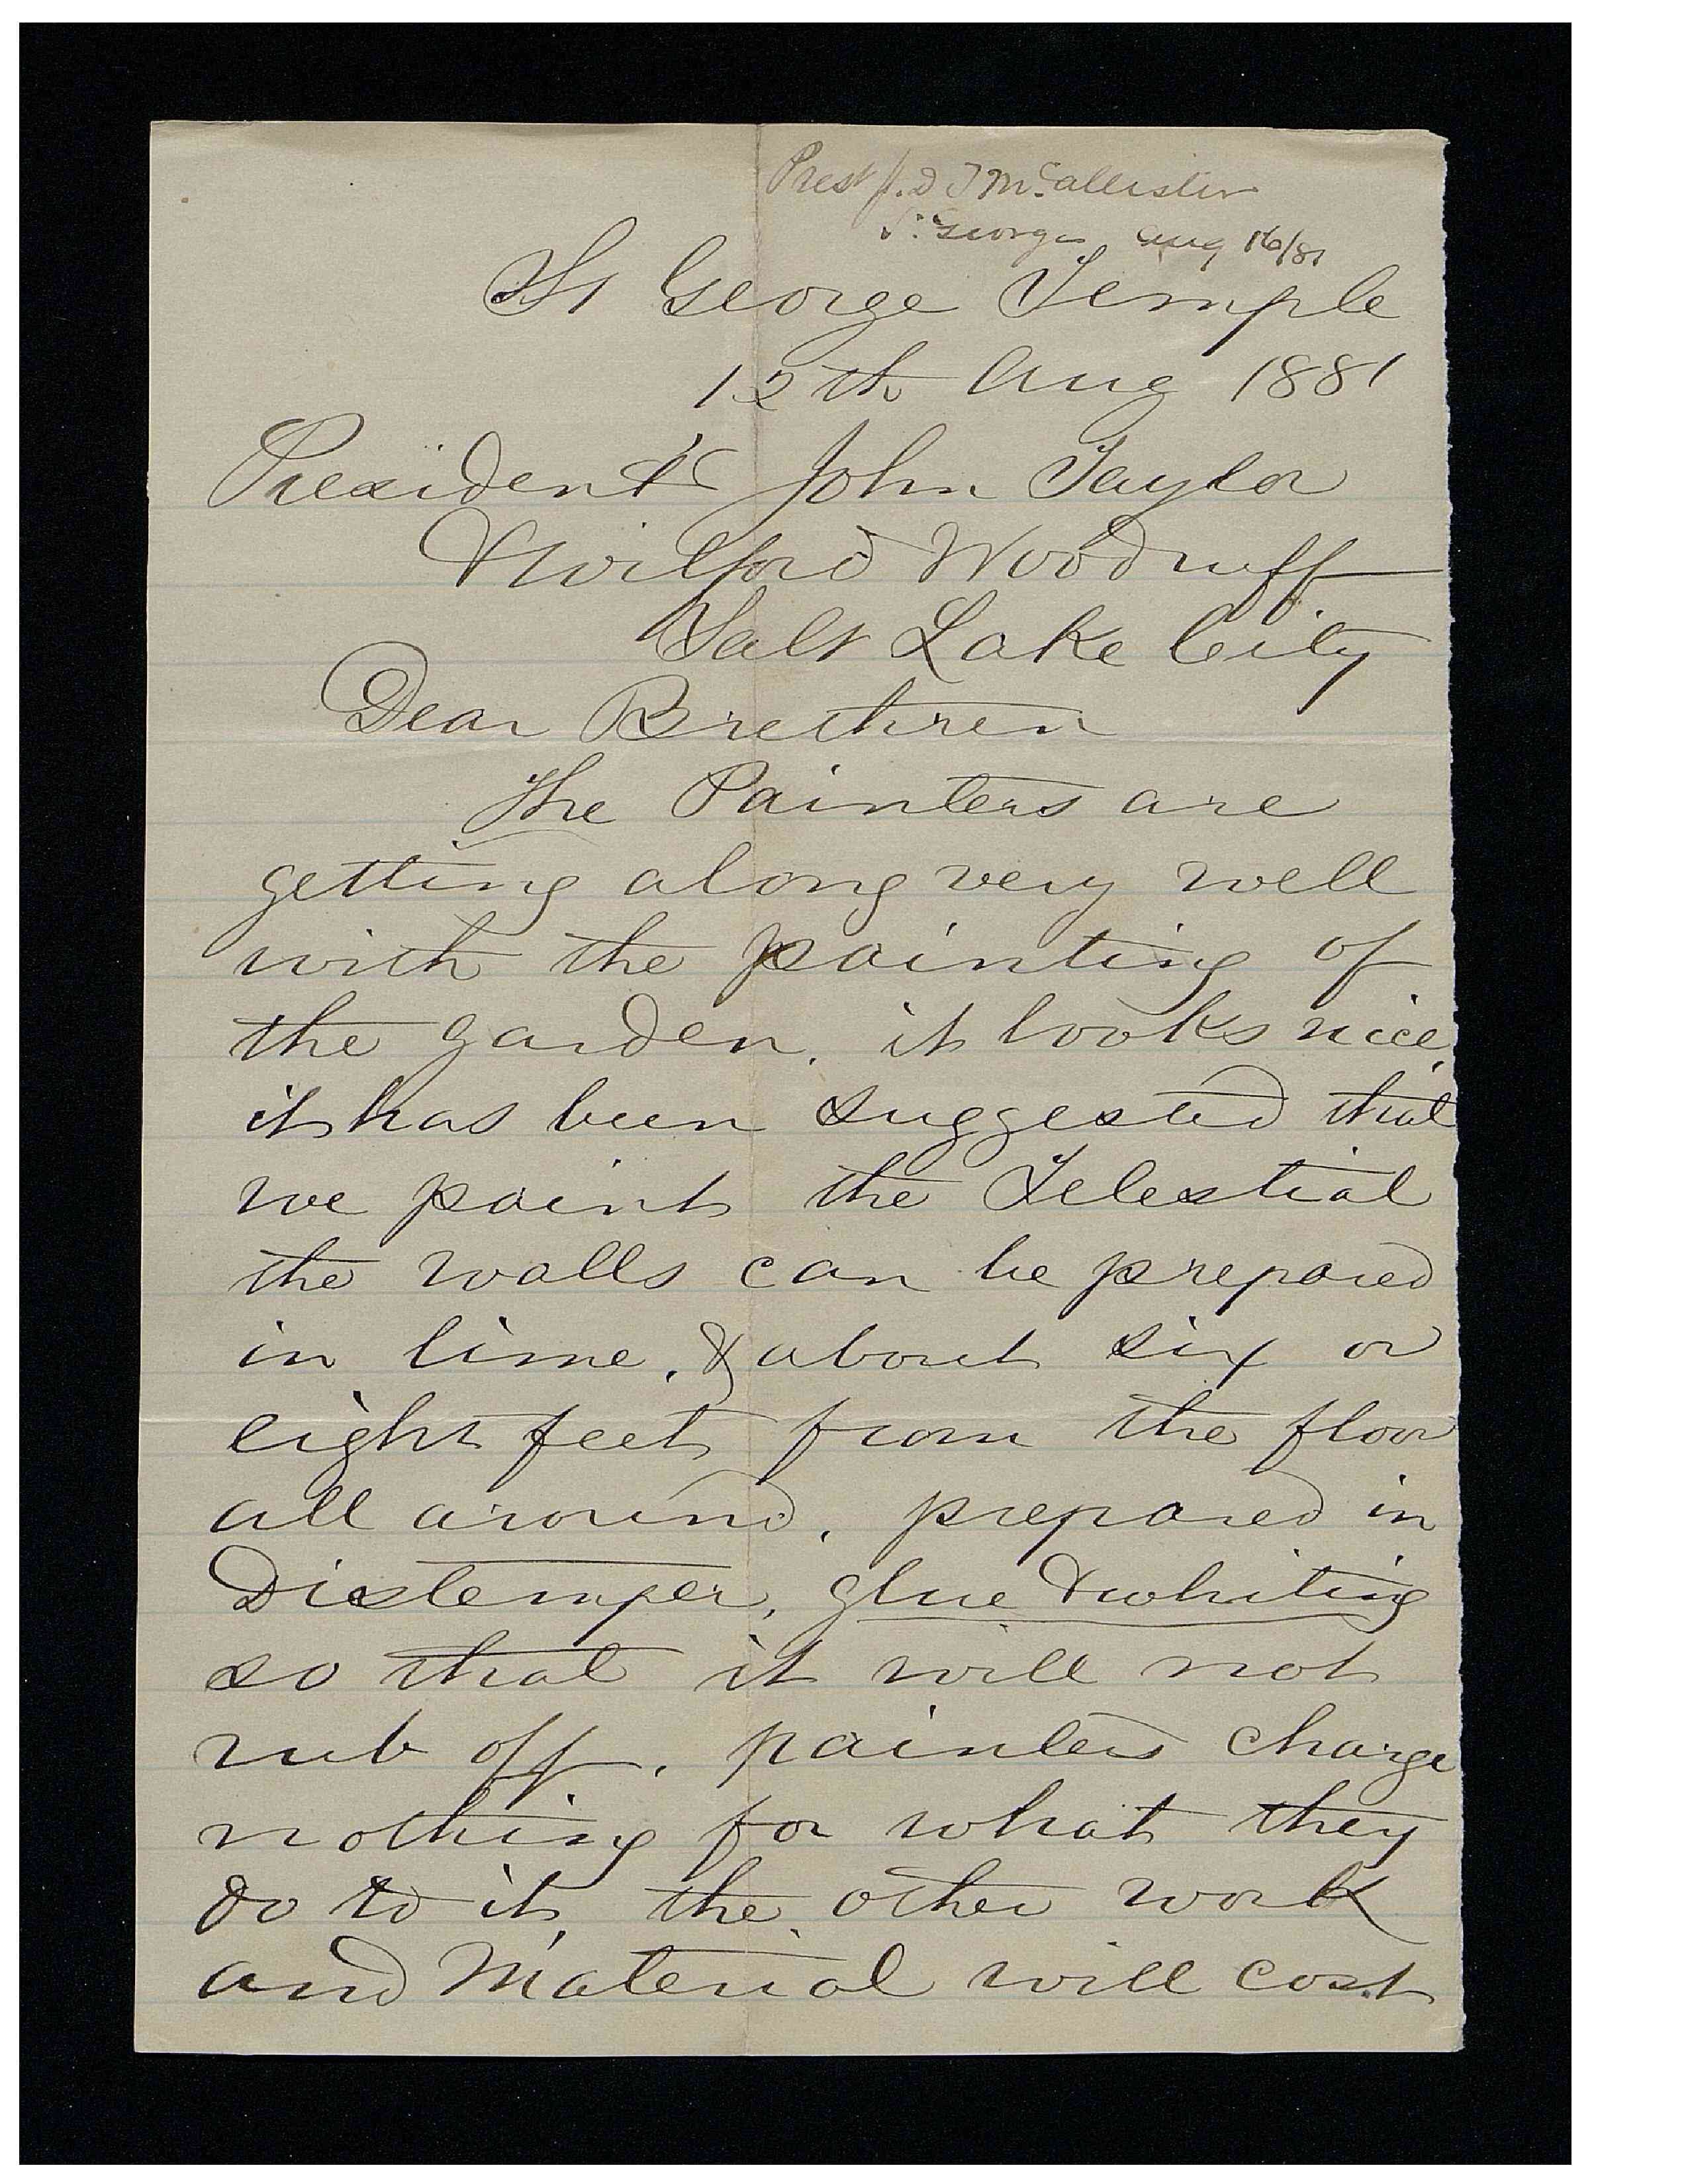 Prest J. D T McCallister
St George Aug 16/81
St George Temple
12th Aug 1881
Presidents John Taylor
& Wilford Woodruff
Salt Lake City
Dear Brethren
The Painters are
getting along very well
with the painting of
the garden. it looks nice,
it has been suggested that
we paint the Telestial
the walls can be prepared
in lime, & about six or
eight feet from the floor
all around, prepared in
Distemper, glue & whiting
so that it will not
rub off. painters charge
nothing for what they
do to it, the other work
and Material will cost